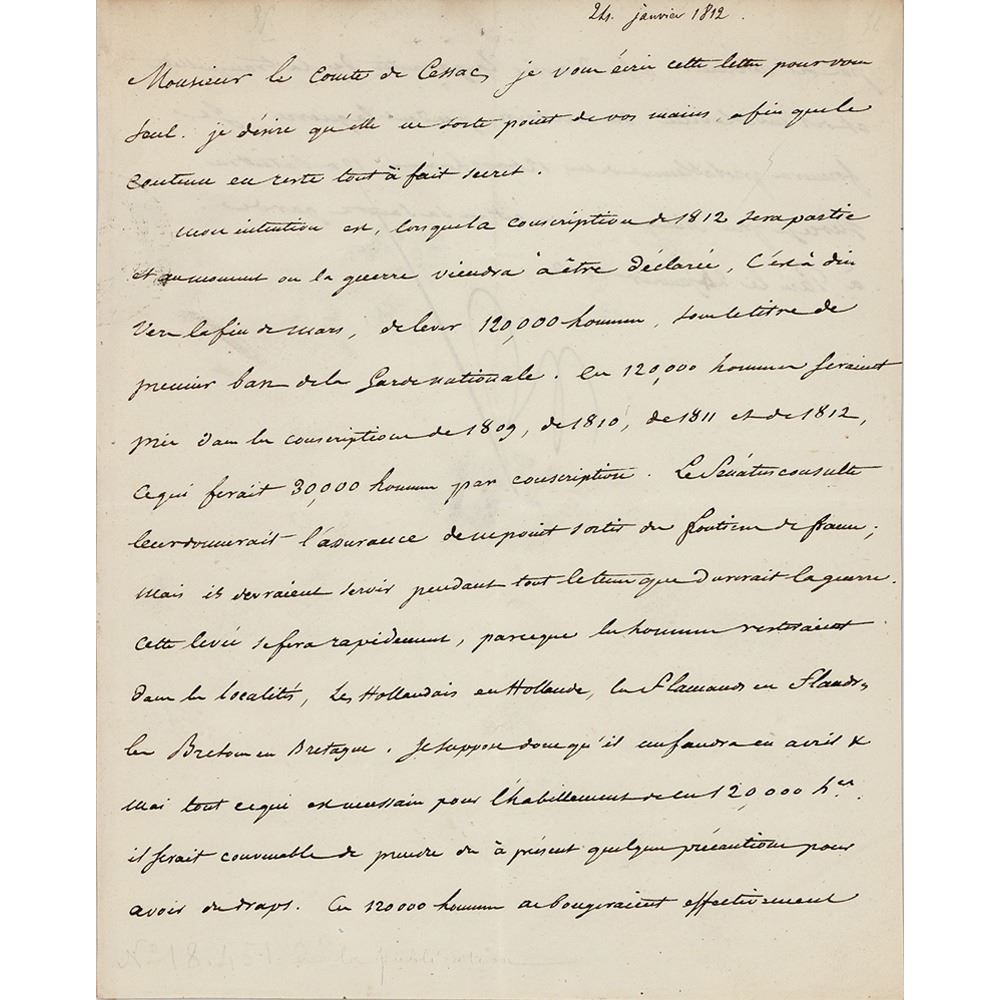 24. janvier 1812.
Monsieur le Comte de Cessac, je vous écris cette lettre pour vous
seul. je désire qu'elle ne sorte point de vos mains, afin que le
contenu en reste tout à fait secret.
mon intention est, lorsque la conscription de 1812 sera partie
et au moment ou la guerre viendra à être déclarée, C'est à dire
Vers la fin de mars, de lever 120,000 hommes, sous le titre de
premier ban de la Garde nationale. Ces 120,000 hommes seraient
pris dans les conscriptions de 1809, de 1810, de 1811 et de 1812,
ce qui ferait 30,000 hommes par conscription. Le Sénatus consulte
leur donnerait l'assurance de ne point sortir des frontières de france;
mais ils devraient servir pendant tout le tems que durerait la guerre.
Cette levée se fera rapidement, parceque les hommes resteraient
dans les localités, Les Hollandais en Hollande, les Flamands en Flandre,
les Bretons en Bretagne. Je suppose donc qu'il me faudra en avril &
mai tout ce qui est nécessaire pour l'habillement de ces 120,000 h.es.
il serait convenable de prendre dès à présent quelques précautions pour
avoir des draps. Ces 120000 hommes ne bougeraient effectivement